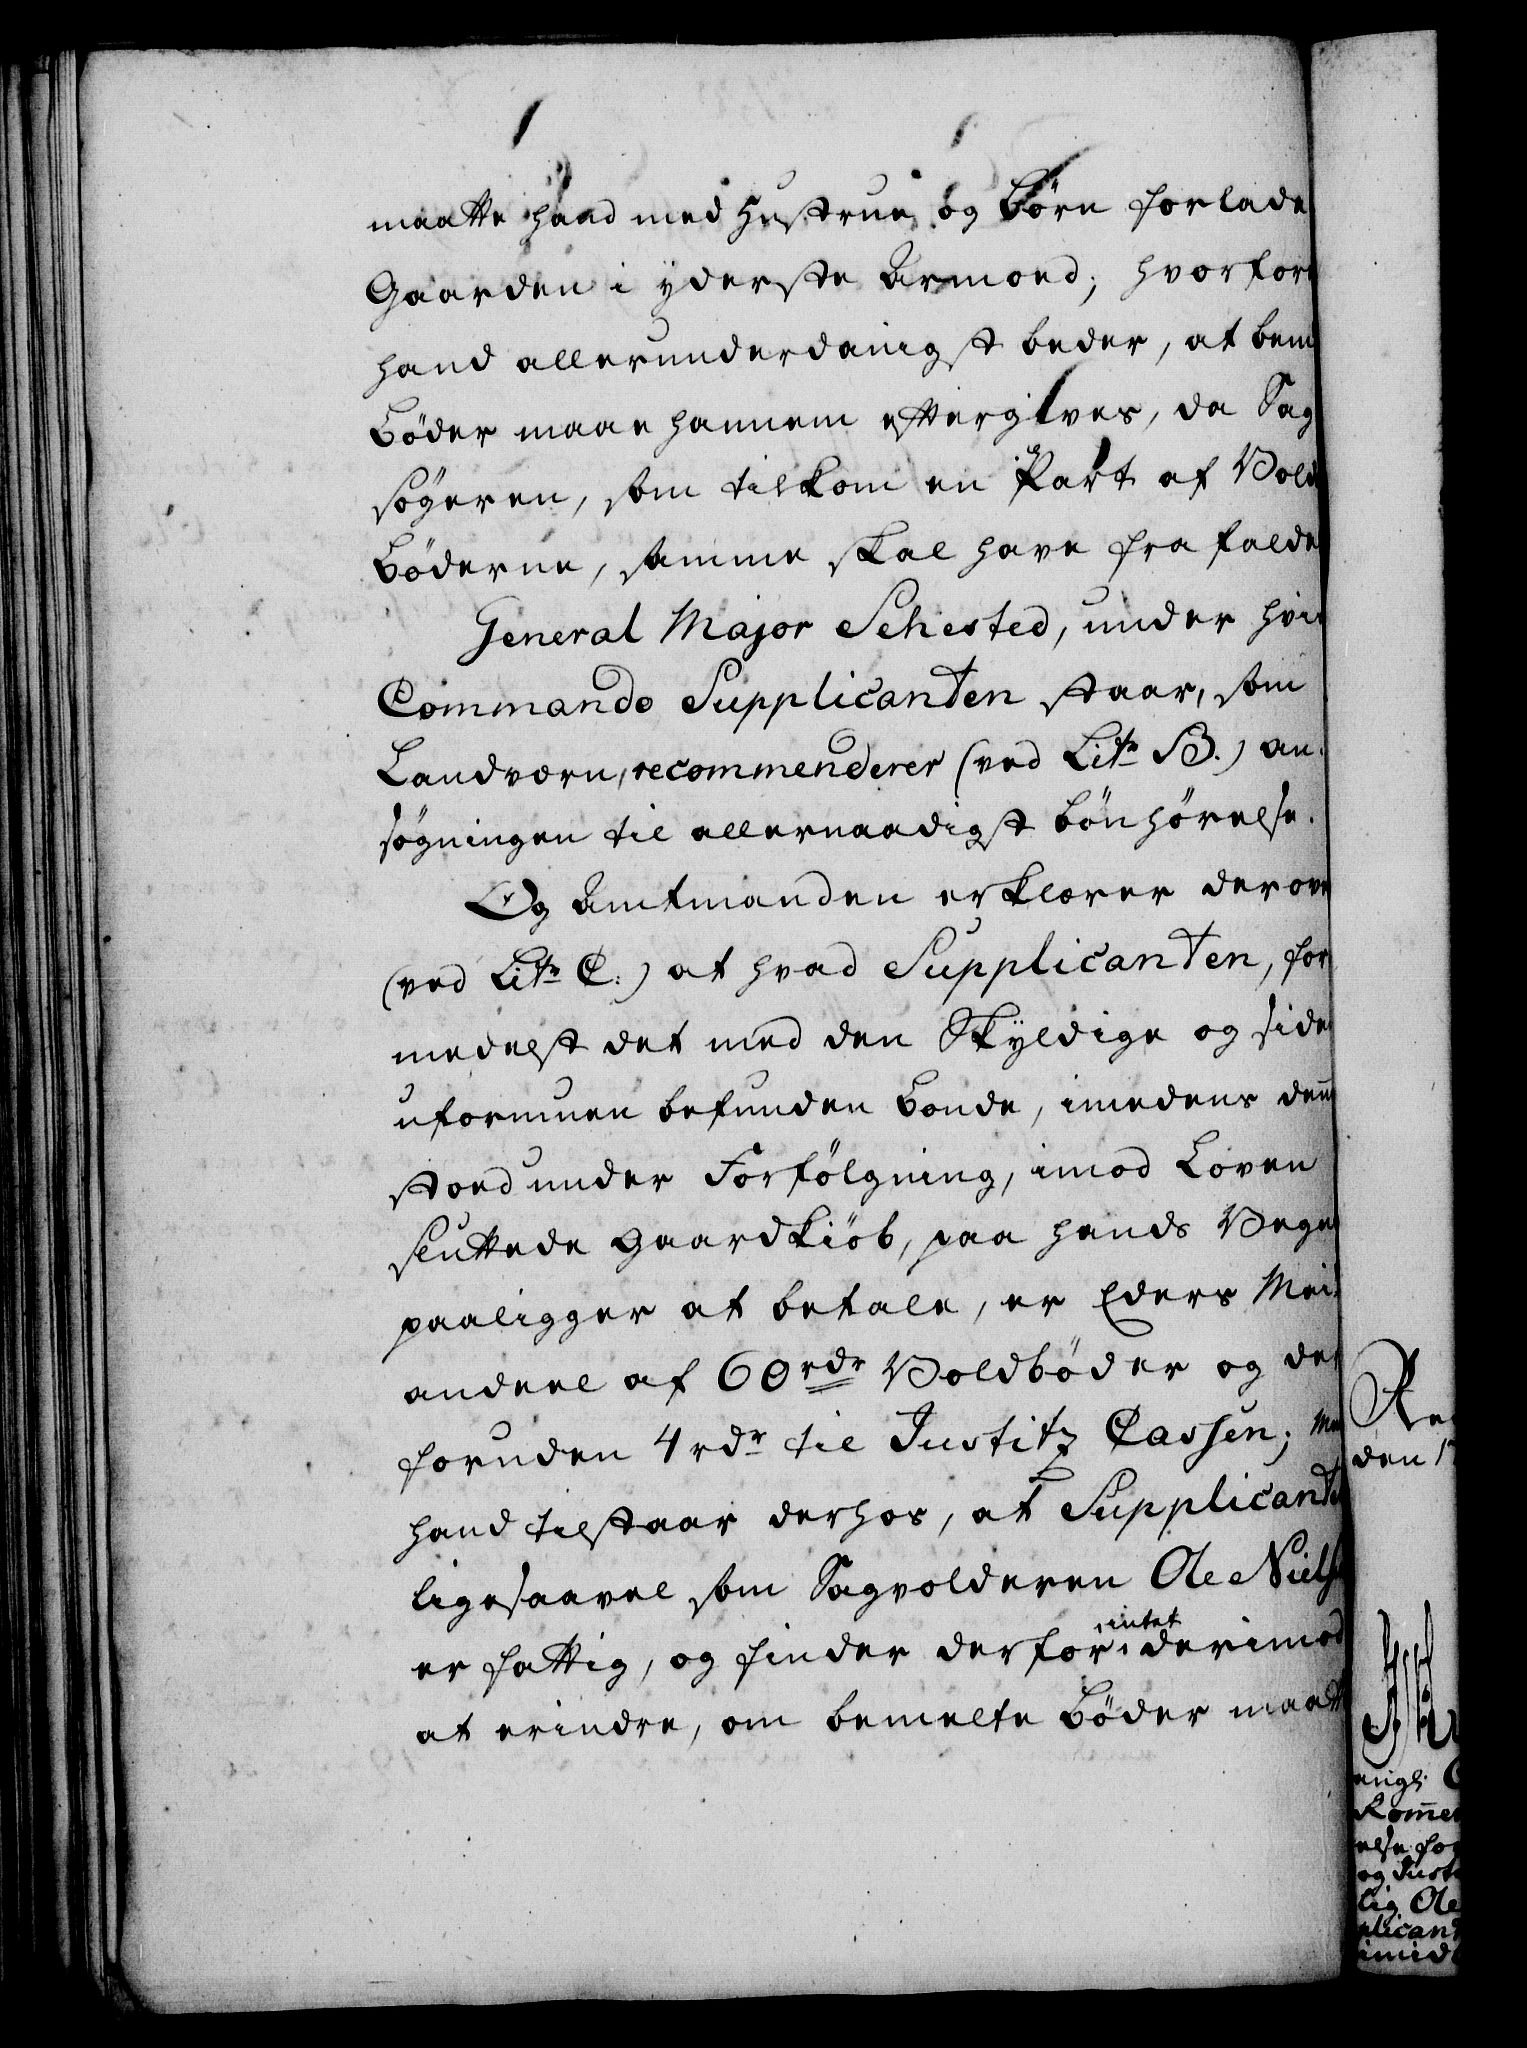 maatte hand med Hustrue og Börn forlade
Gaarden i yderste Armoed; hvorfor
hand allerunderdanigst beder, at bem
Böder maae hannem eftergives, da Sag
sögeren, som tilkom en Part af Vold
Böderne, samme skal have frafalde
General Major Sehested, under hvis
Commando Supplicanten staar, som
Landværn, recommenderer (ved Litr B.) an-
søgningen til allernaadigst bönhörelse.
Og Amtmanden erklærer derove
(ved Litr C:) at hvad Supplicanten, for
medelst det med den Skyldige og side
uformuen befunden Bonde, imedens den
stoed under Forfölgning, imod Loven
sluttede Gaardkiöb, paa hands Vegne
paaligger at betale, er Eders Mai:
andeel af 60 rdr Voldböder og der
foruden 4 rdr til Justitz Cassen; Men
hand tilstaar derhos, at Supplicanten
ligesaavel som Sagvolderen Ole Niels
er fattig, og finder derfor intet derimod
at erindre, om bemelte Böder maatt
Re
den 1
engl:
Komme
else for
og Just
lig Ole
plicant
imid